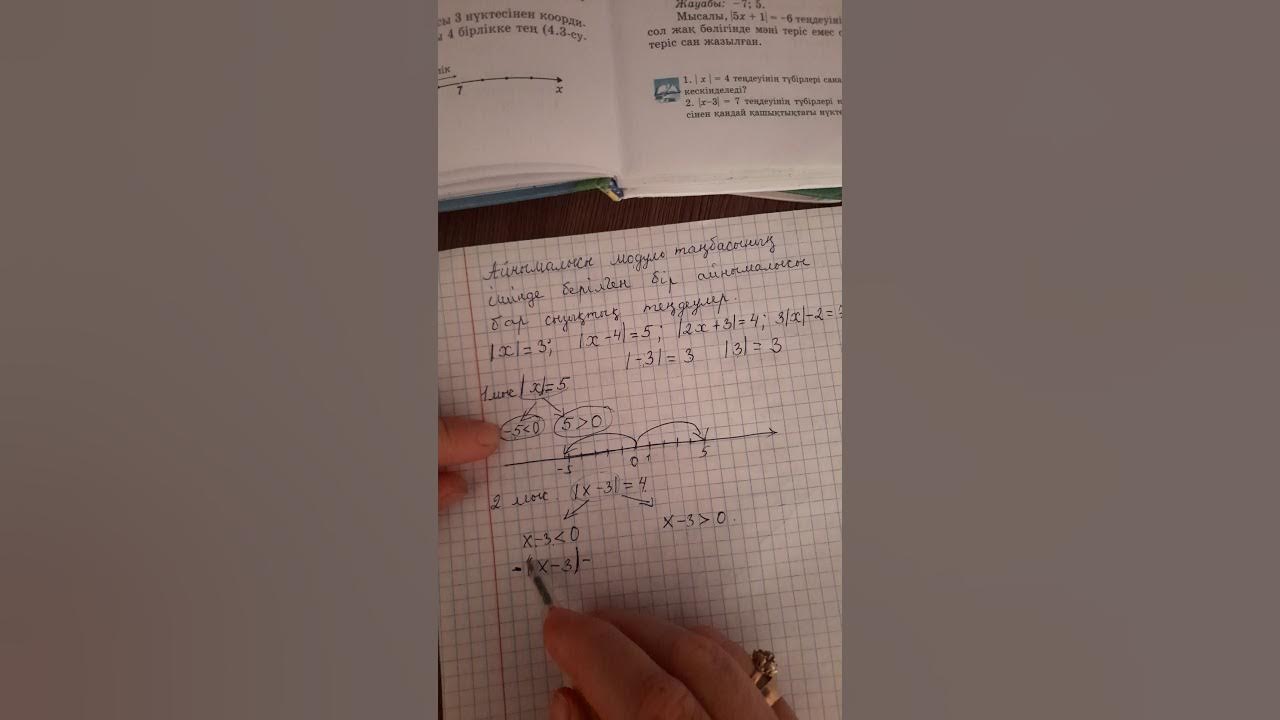 3 нүктесінен коорди.
4 бірлікке тең (4.3-су.
7 x
Жауабы: –7; 5.
Мысалы, |5x + 1| = –6 теңдеуіні
сол жақ бөлігінде мәні теріс емес
теріс сан жазылған.
1. | x | = 4 теңдеуінің түбірлері сана
кескінделеді?
2. |x–3| = 7 теңдеуінің түбірлері
сінен қандай қашықтықтағы нүкте
Айнымалысы модуль таңбасының
ішінде берілген бір айнымалысы
бар сызықтық теңдеулер.
|x|=3; |x-4|=5; |2x+3|=4; 3|x|-2=
|-3|=3 |3|=3
1 мыс |x|=5
-5<0 5>0
-5 0 1 5
2 мыс |x-3|=4
x-3<0 x-3>0.
-|x-3|-